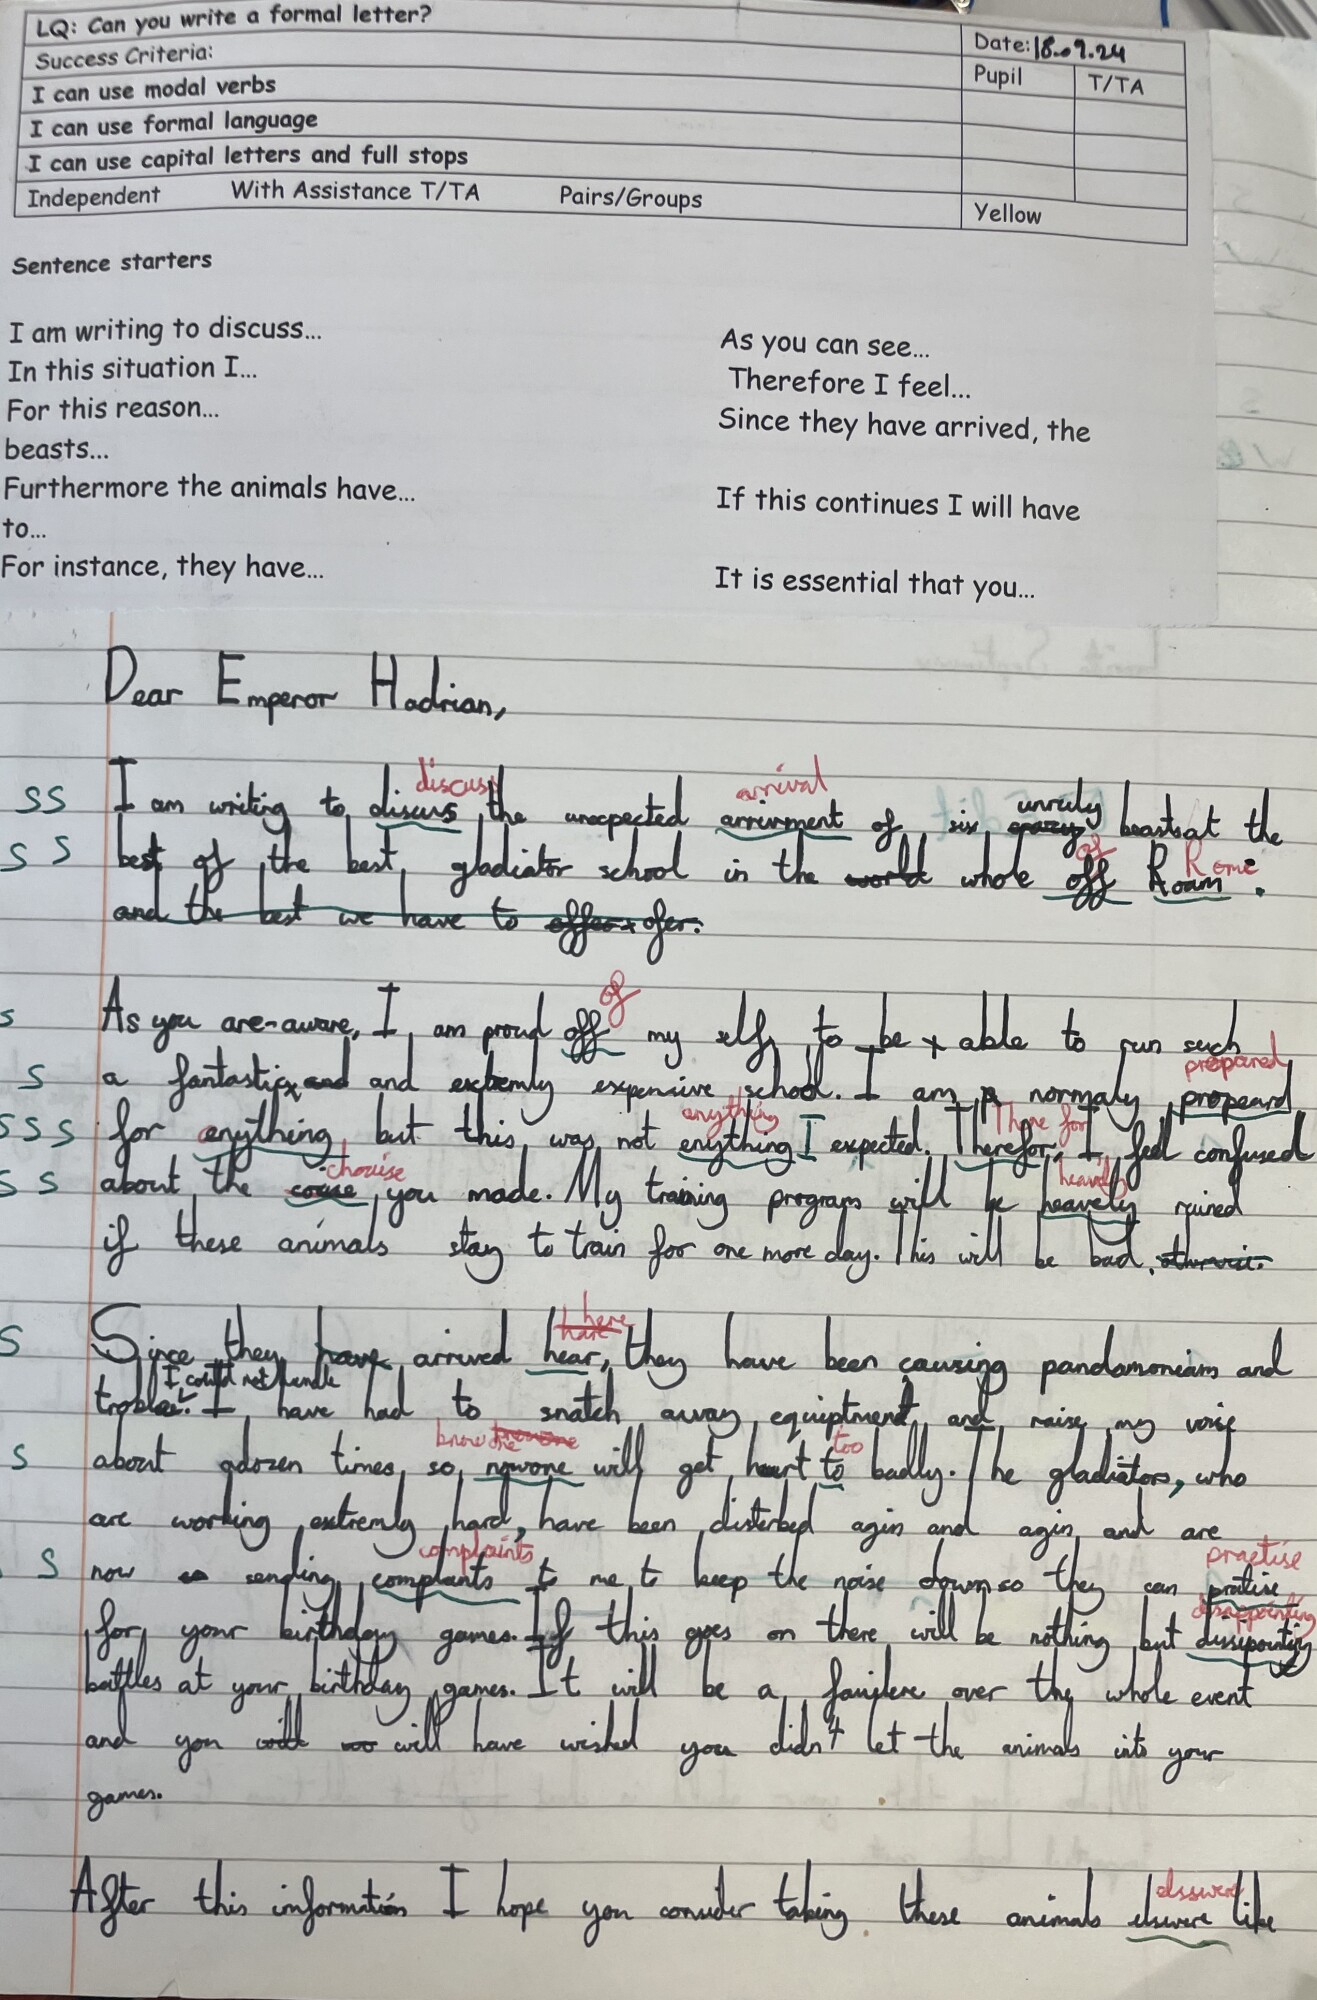 LQ: Can you write a formal letter?
Date: 18.09.24
Success Criteria:
Pupil T/TA
I can use modal verbs
I can use formal language
I can use capital letters and full stops
Independent With Assistance T/TA Pairs/Groups Yellow
Sentence starters
I am writing to discuss...
As you can see...
In this situation I...
Therefore I feel...
For this reason...
Since they have arrived, the
beasts...
Furthermore the animals have...
If this continues I will have
to...
For instance, they have...
It is essential that you...
Dear Emperor Hadrian,
discuss arrival unruly
SS I am writing to discus the unexpected arrirment of six beasts at the
of Rome
SS best of the best, gladiator school in the world whole off Roam.
and the best we have to offer ofer.
of
S As you are-aware, I am proud off my self, to be able to run such
prepared
S a fantastic and and extremly expensive school. I am normaly propeard
anything There for
SSS for anything, but this was not enything I expected. Therefor, I feel confused
chouise heavily
SS about the couse you made. My training program will be heavely ruined
if these animals stay to train for one more day. This will be bad.
here
S Since they have arrived hear, they have been causing pandamoniam and
I could not handle
trobble. I have had to snatch away equiptment and raise my voice
knowone too
S about adozen times, so nowone will get heart to badly. The gladiators, who
are working extremly hard, have been disterbed agin and agin and are
complaints practise
S now sending complants to me to keep the noise down so they can pratise
disappointing
for your birthday games. If this goes on there will be nothing but dissipointing
battles at your birthday games. It will be a fauilere over the whole event
and you will will have wished you didn't let the animals into your
games.
elsswere
After this information I hope you consider taking these animals elswere like